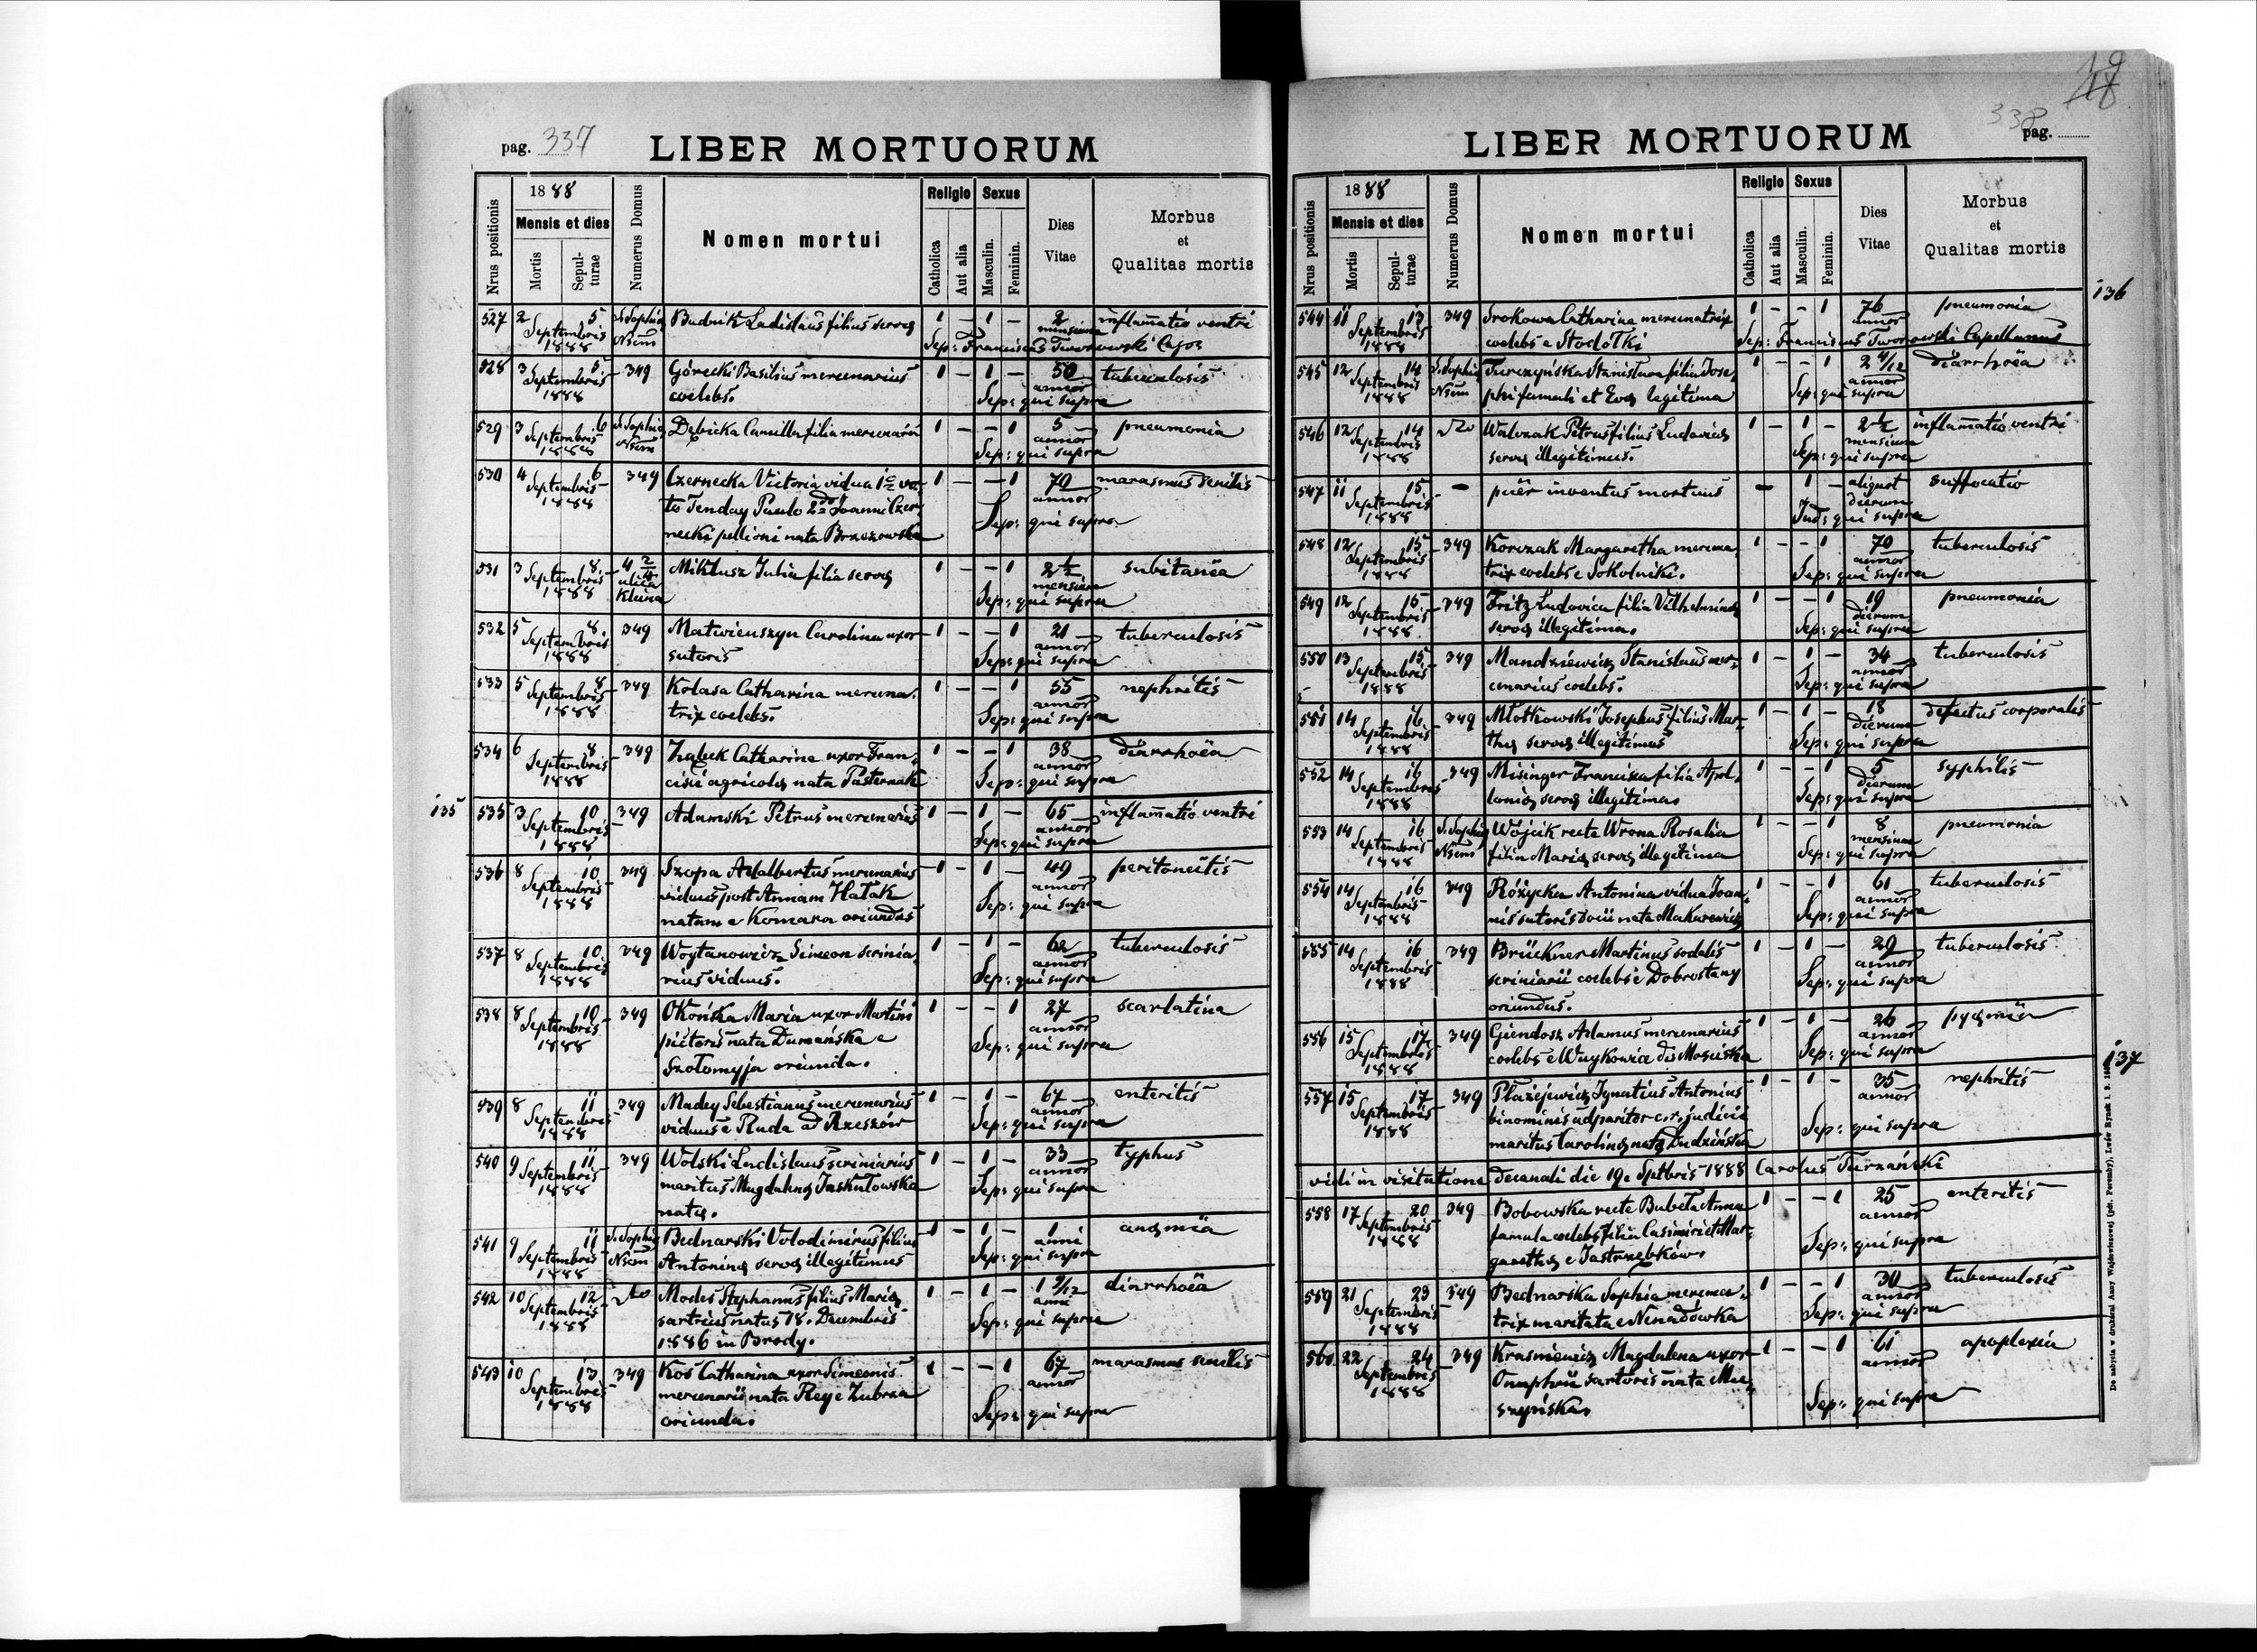 pag. 337
LIBER MORTUORUM
Nrus positionis
1888
Mensis et dies
Mortis
Sepulturae
Numerus Domus
Nomen mortui
Religio
Catholica
Aut alia
Sexus
Masculin.
Feminin.
Dies Vitae
Morbus et Qualitas mortis
527 2 5 Septembris 1888 S. Sophia Nsem Budnik Ladislaus filius servae 1 - 1 - 2 mensium inflamatio ventri
Sep: Franciscus Tworowski
528 3 5 Septembris 1888 349 Górecki Basilius mercenarius 1 - 1 - 50 annor tuberculosis
coelebs. Sep: qui supra
529 3 6 Septembris 1888 S. Sophia Nsem Dębicka Camilla filia mercenarii 1 - - 1 5 annor pneumonia
Sep: qui supra
530 4 6 Septembris 1888 349 Czernecka Victoria vidua 1º vo- 1 - - 1 70 annor marasmus senilis
to Tenday Paulo 2do Joanni Czer-
necki pellioni nata Brzezowska
Sep: qui supra
531 3 8 Septembris 1888 4 2/4 ulica Miklusz Julia filia servae 1 - - 1 2 1/2 mensium subitanëa
Sep: qui supra
532 5 8 Septembris 1888 349 Matwieuszyn Carolina uxor 1 - - 1 21 annor tuberculosis
sutoris Sep: qui supra
533 5 8 Septembris 1888 349 Kolasa Catharina mercena- 1 - - 1 55 annor nephritis
trix coelebs. Sep: qui supra
534 6 8 Septembris 1888 349 Ząbek Catharina uxor Fran- 1 - - 1 38 annor diarrhoëa
cisci agricolae nata Pasternak Sep: qui supra
135
535 3 10 Septembris 1888 349 Adamski Petrus mercenarius 1 - 1 - 65 annor inflamatio ventri
Sep: qui supra
536 8 10 Septembris 1888 349 Szopa Adalbertus mercenarius 1 - 1 - 49 annor peritoneitis
viduus post Annam Hałak
natam e Komara oriundus
Sep: qui supra
537 8 10 Septembris 1888 349 Woytanowicz Simeon scrinia- 1 - 1 - 62 annor tuberculosis
rius viduus. Sep: qui supra
538 8 10 Septembris 1888 349 Okońska Maria uxor Martini 1 - - 1 27 annor scarlatina
pictoris nata Dumańska e
Szołomyja oriunda.
Sep: qui supra
539 8 11 Septembris 1888 349 Madey Sebestianus mercenarius 1 - 1 - 67 annor enteritis
viduus e Ruda ad Rzeszów Sep: qui supra
540 9 11 Septembris 1888 349 Wolski Ladislaus scriniarius 1 - 1 - 33 annor typhus
maritus Magdalenae Jaskułowska
natae. Sep: qui supra
541 9 11 Septembris 1888 S. Sophia Nsem Bednarski Volodimirus filius 1 - 1 - 1 anni anaemia
Antoninae servae illegitimus Sep: qui supra
542 10 12 Septembris 1888 dto Modes Stephanus filius Mariae 1 - 1 - 1 9/12 anni diarrhoëa
sartricis natus 18. Decembris
1886 in Brody. Sep: qui supra
543 10 13 Septembris 1888 349 Kos Catharina uxor Simeonis 1 - - 1 67 annor marasmus senilis
mercenarii nata Rey e Zubrza
oriunda. Sep: qui supra
19
338
pag.
LIBER MORTUORUM
Nrus positionis
1888
Mensis et dies
Mortis
Sepulturae
Numerus Domus
Nomen mortui
Religio
Catholica
Aut alia
Sexus
Masculin.
Feminin.
Dies Vitae
Morbus et Qualitas mortis
136
544 11 13 Septembris 1888 349 Srokowa Catharina mercenatrix 1 - - 1 76 annor pneumonia
coelebs e Stodółki Sep: Franciscus Tworowski Capellanus
545 12 14 Septembris 1888 S. Sophia Nsem Turczyńska Stanislava filia Jose- 1 - - 1 2 4/12 annor diarrhoëa
phi famuli et Evae legitima Sep: qui supra
546 12 14 Septembris 1888 dto Walczak Petrus filius Ludovicae 1 - 1 - 2 1/2 mensium inflamatio ventri
servae illegitimus. Sep: qui supra
547 11 15 Septembris 1888 - puer inventus mortuus - 1 - aliquot dierum suffocatio
Ind: qui supra
548 12 15 Septembris 1888 349 Korczak Margaretha mercena- 1 - - 1 70 annor tuberculosis
trix coelebs e Sokolniki. Sep: qui supra
549 12 15 Septembris 1888 349 Fritz Ludovica filia Vilhelminae 1 - - 1 19 dierum pneumonia
servae illegitima. Sep: qui supra
550 13 15 Septembris 1888 349 Mandziewicz Stanislaus mer- 1 - 1 - 34 annor tuberculosis
cenarius coelebs. Sep: qui supra
551 14 16 Septembris 1888 349 Młotkowski Josephus filius Mar- 1 - 1 - 18 dierum defectus corporalis
thae servae illegitimus Sep: qui supra
552 14 16 Septembris 1888 349 Misinger Francisca filia Apol- 1 - - 1 5 dierum syphilis
loniae servae illegitima. Sep: qui supra
553 14 16 Septembris 1888 S. Sophia Nsem Wójcik recte Wrona Rosalia 1 - - 1 8 mensium pneumonia
filia Mariae servae illegitima Sep: qui supra
554 14 16 Septembris 1888 349 Różycka Antonina vidua Joan- 1 - - 1 61 annor tuberculosis
nis sutoris socii nata Makarewicz Sep: qui supra
555 14 16 Septembris 1888 349 Brückner Martinus sodalis 1 - 1 - 29 annor tuberculosis
scriniarii coelebs e Dobrostany
oriundus. Sep: qui supra
556 15 17 Septembris 1888 349 Giendosz Adamus mercenarius 1 - 1 - 26 annor pyaemia
coelebs e Wuykowice dis Mosciska Sep: qui supra
137
557 15 17 Septembris 1888 349 Płazejewicz Ignatius Antonius 1 - 1 - 35 annor nephritis
binominis adparitor c. r. judicii
maritus Carolinae natae Dudzińska Sep: qui supra
vidi in visitatione Decanali die 19e Sptbris 1888 Carolus Turzański
558 17 20 Septembris 1888 349 Bobowska recte Bubeła Anna 1 - - 1 25 annor enteritis
famula coelebs filia Casimiri et Mar-
garethae e Jastrzębków. Sep: qui supra
559 21 23 Septembris 1888 349 Bednarska Sophia mercena- 1 - - 1 30 annor tuberculosis
trix maritata e Nenadówka Sep: qui supra
560 22 24 Septembris 1888 349 Krasniewicz Magdalena uxor 1 - - 1 61 annor apoplexia
Onuphrii sartoris nata Mu-
szyńska. Sep: qui supra
De nabycia w drukarni Anny Wajdowiczowej (pdt. Poremby), Lwów Rynek l. 9.